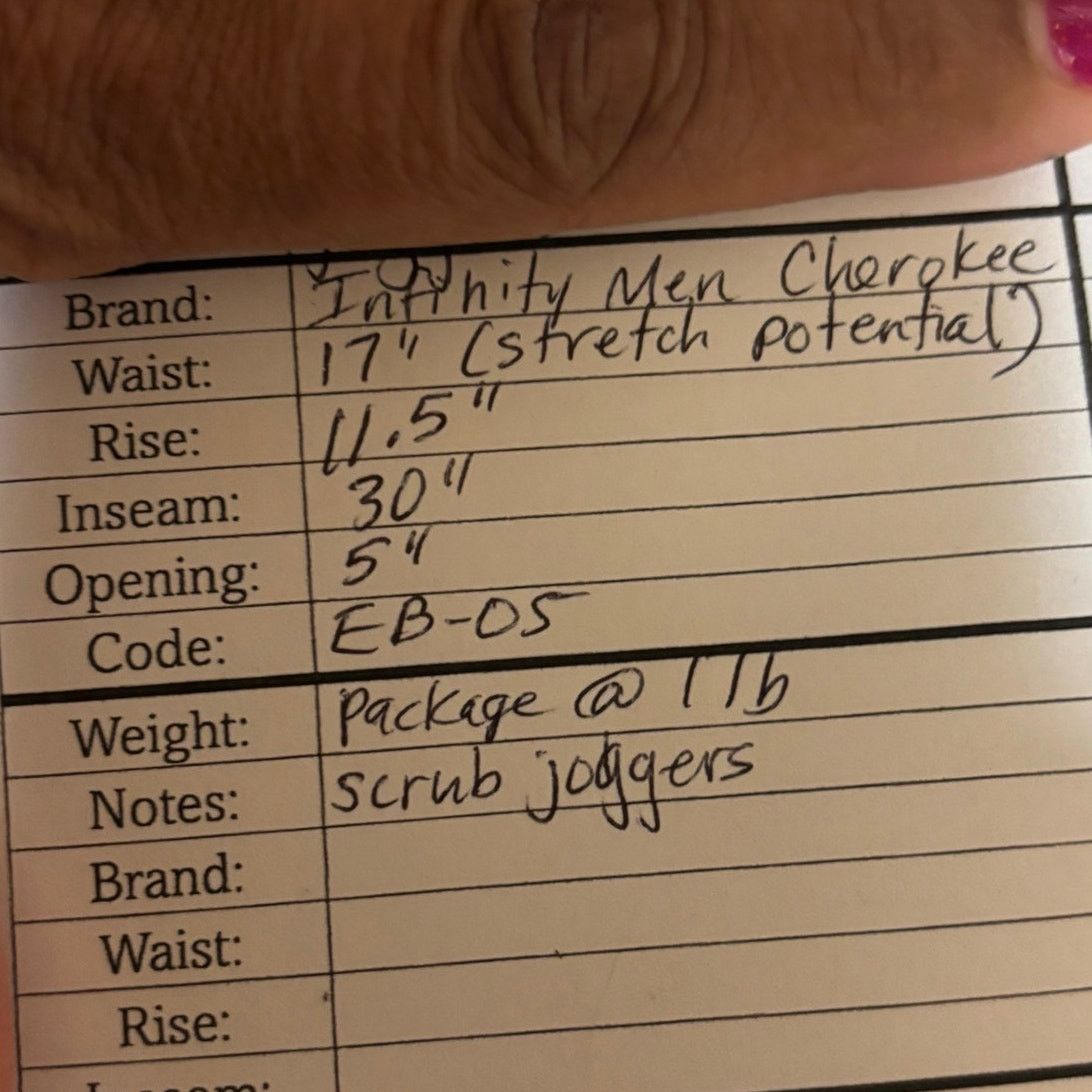 Brand: Infinity Men Cherokee
Waist: 17" (stretch potential)
Rise: 11.5"
Inseam: 30"
Opening: 5"
Code: EB-05
Weight: package @ 1 lb
Notes: scrub joggers
Brand:
Waist:
Rise: